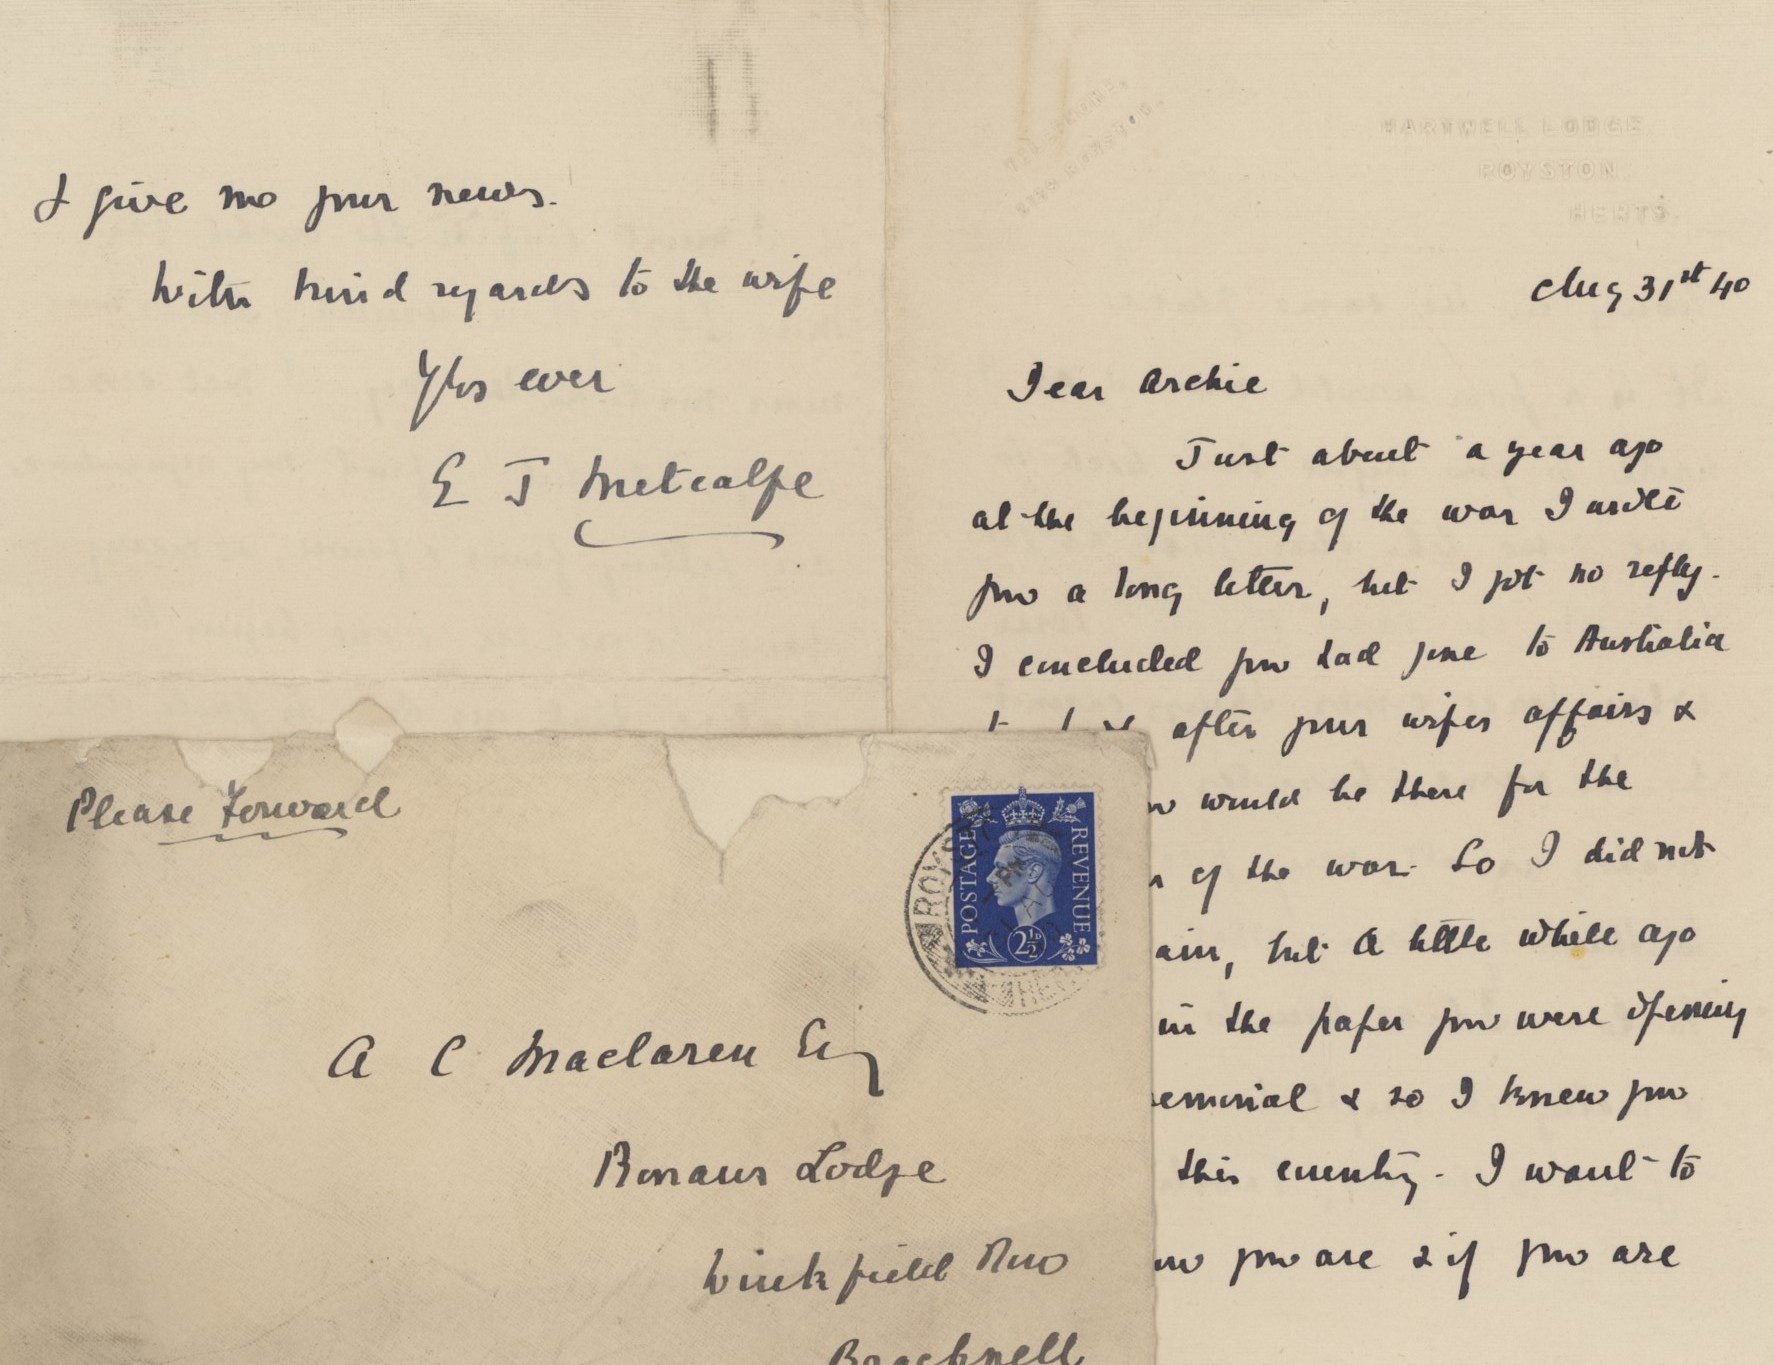 & give me your news.
With kind regards to the wife
Yrs ever
E J Metcalfe
HARTWELL LODGE
ROYSTON
HERTS.
Aug 31st 40
Dear Archie
Just about a year ago
at the beginning of the war I wrote
you a long letter, but I got no reply.
I concluded you had gone to Australia
after your wifes affairs &
would be there for the
of the war. So I did not
but a little while ago
in the paper you were opening
& so I knew you
this country. I want to
you are & if you are
Please Forward
POSTAGE
REVENUE
2½D
A C Maclaren Esq
Lodge
Winkfield Row
Bracknell